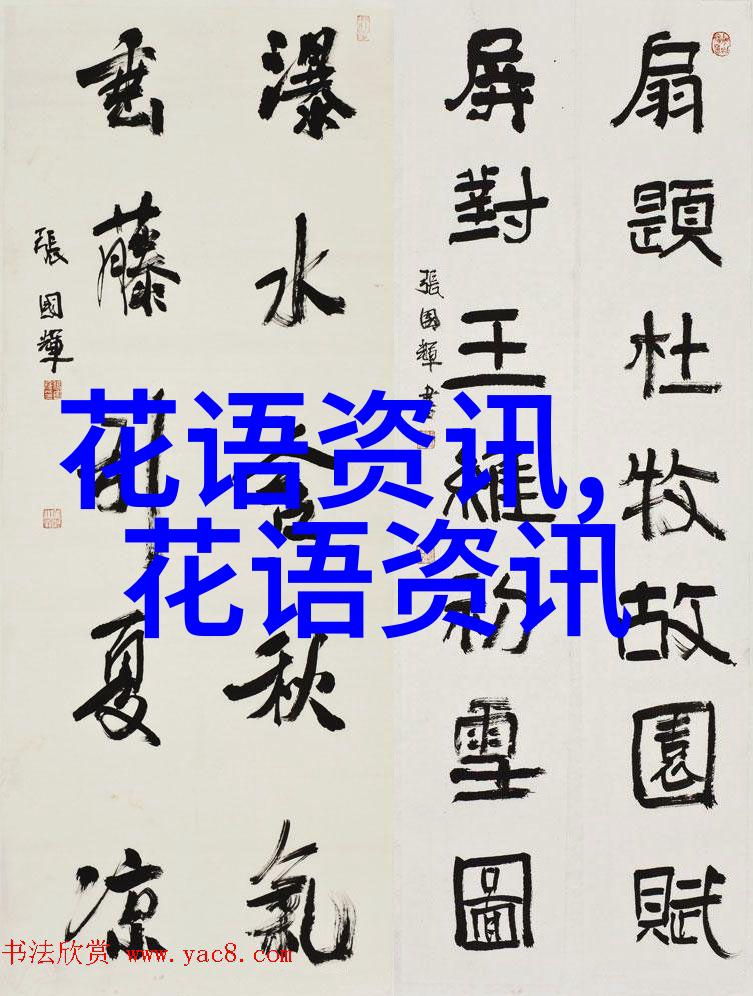 扇題杜牧故園賦
屏對王維初雪圖
張国輝書
瀑水含秋氣
垂藤引夏凉
張國輝
花语资讯,
花语资讯
书法欣赏 www.yac8.com